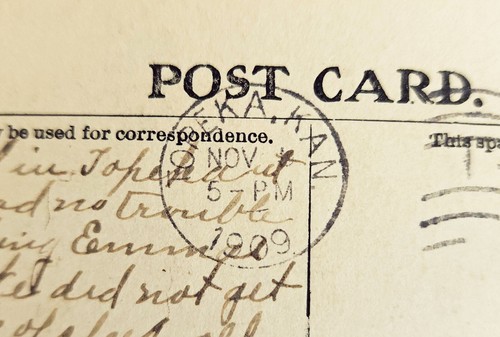 POST CARD.
y be used for correspondence.
This spa
TOPEKA, KAN.
NOV
5- PM
1909
in Topeka
ad no trouble
ing Emma
te did not get
all